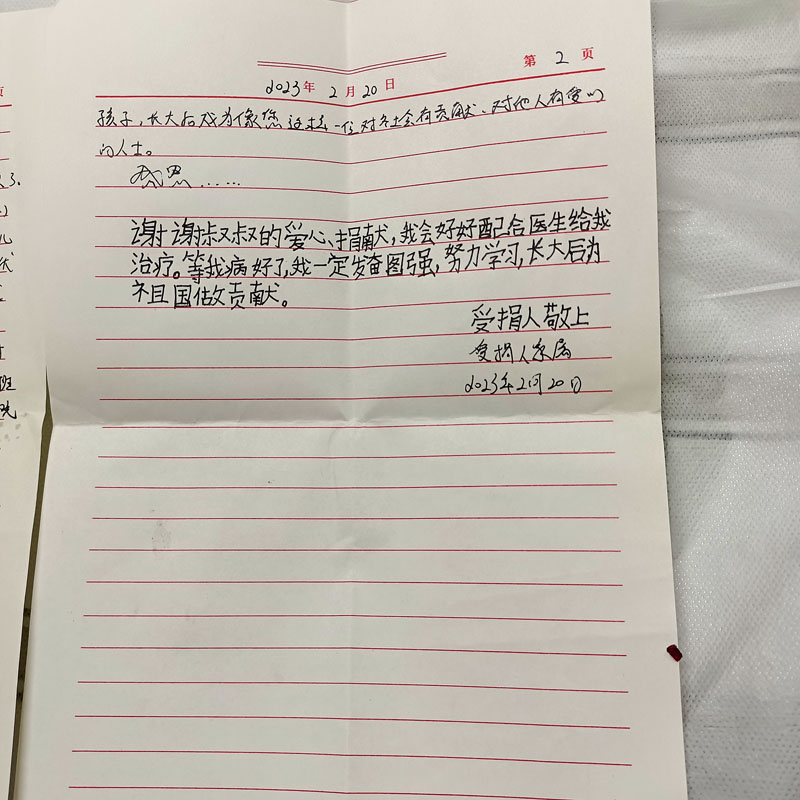 第 2 页
2023年 2月20日
孩子,长大后成为像您这样一位对社会有贡献、对他人有爱心
的人士。
感恩……
谢谢叔叔的爱心、捐献,我会好好配合医生给我
治疗。等我病好了,我一定发奋图强,努力学习,长大后为
祖国做贡献。
受捐人敬上
受捐人家属
2023年2月20日
页
班